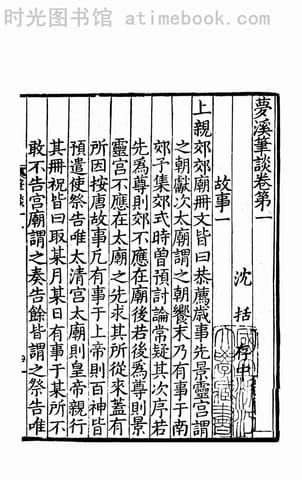 时光图书馆 atimebook.com
夢溪筆談卷第一
沈括 存中
故事一
上親郊郊廟冊文皆曰恭薦歲事先景靈宮謂
之朝獻次太廟謂之朝饗末乃有事于南
郊予集郊式時曽預討論常疑其次序若
先爲尊則郊不應在廟後若後爲尊則景
靈宮不應在太廟之先求其所從來蓋有
所因按唐故事凡有事于上帝則百神皆
預遣使祭告唯太清宮太廟則皇帝親行
其冊祝皆曰取某月某日有事于某所不
敢不告宮廟謂之奏告餘皆謂之祭告唯